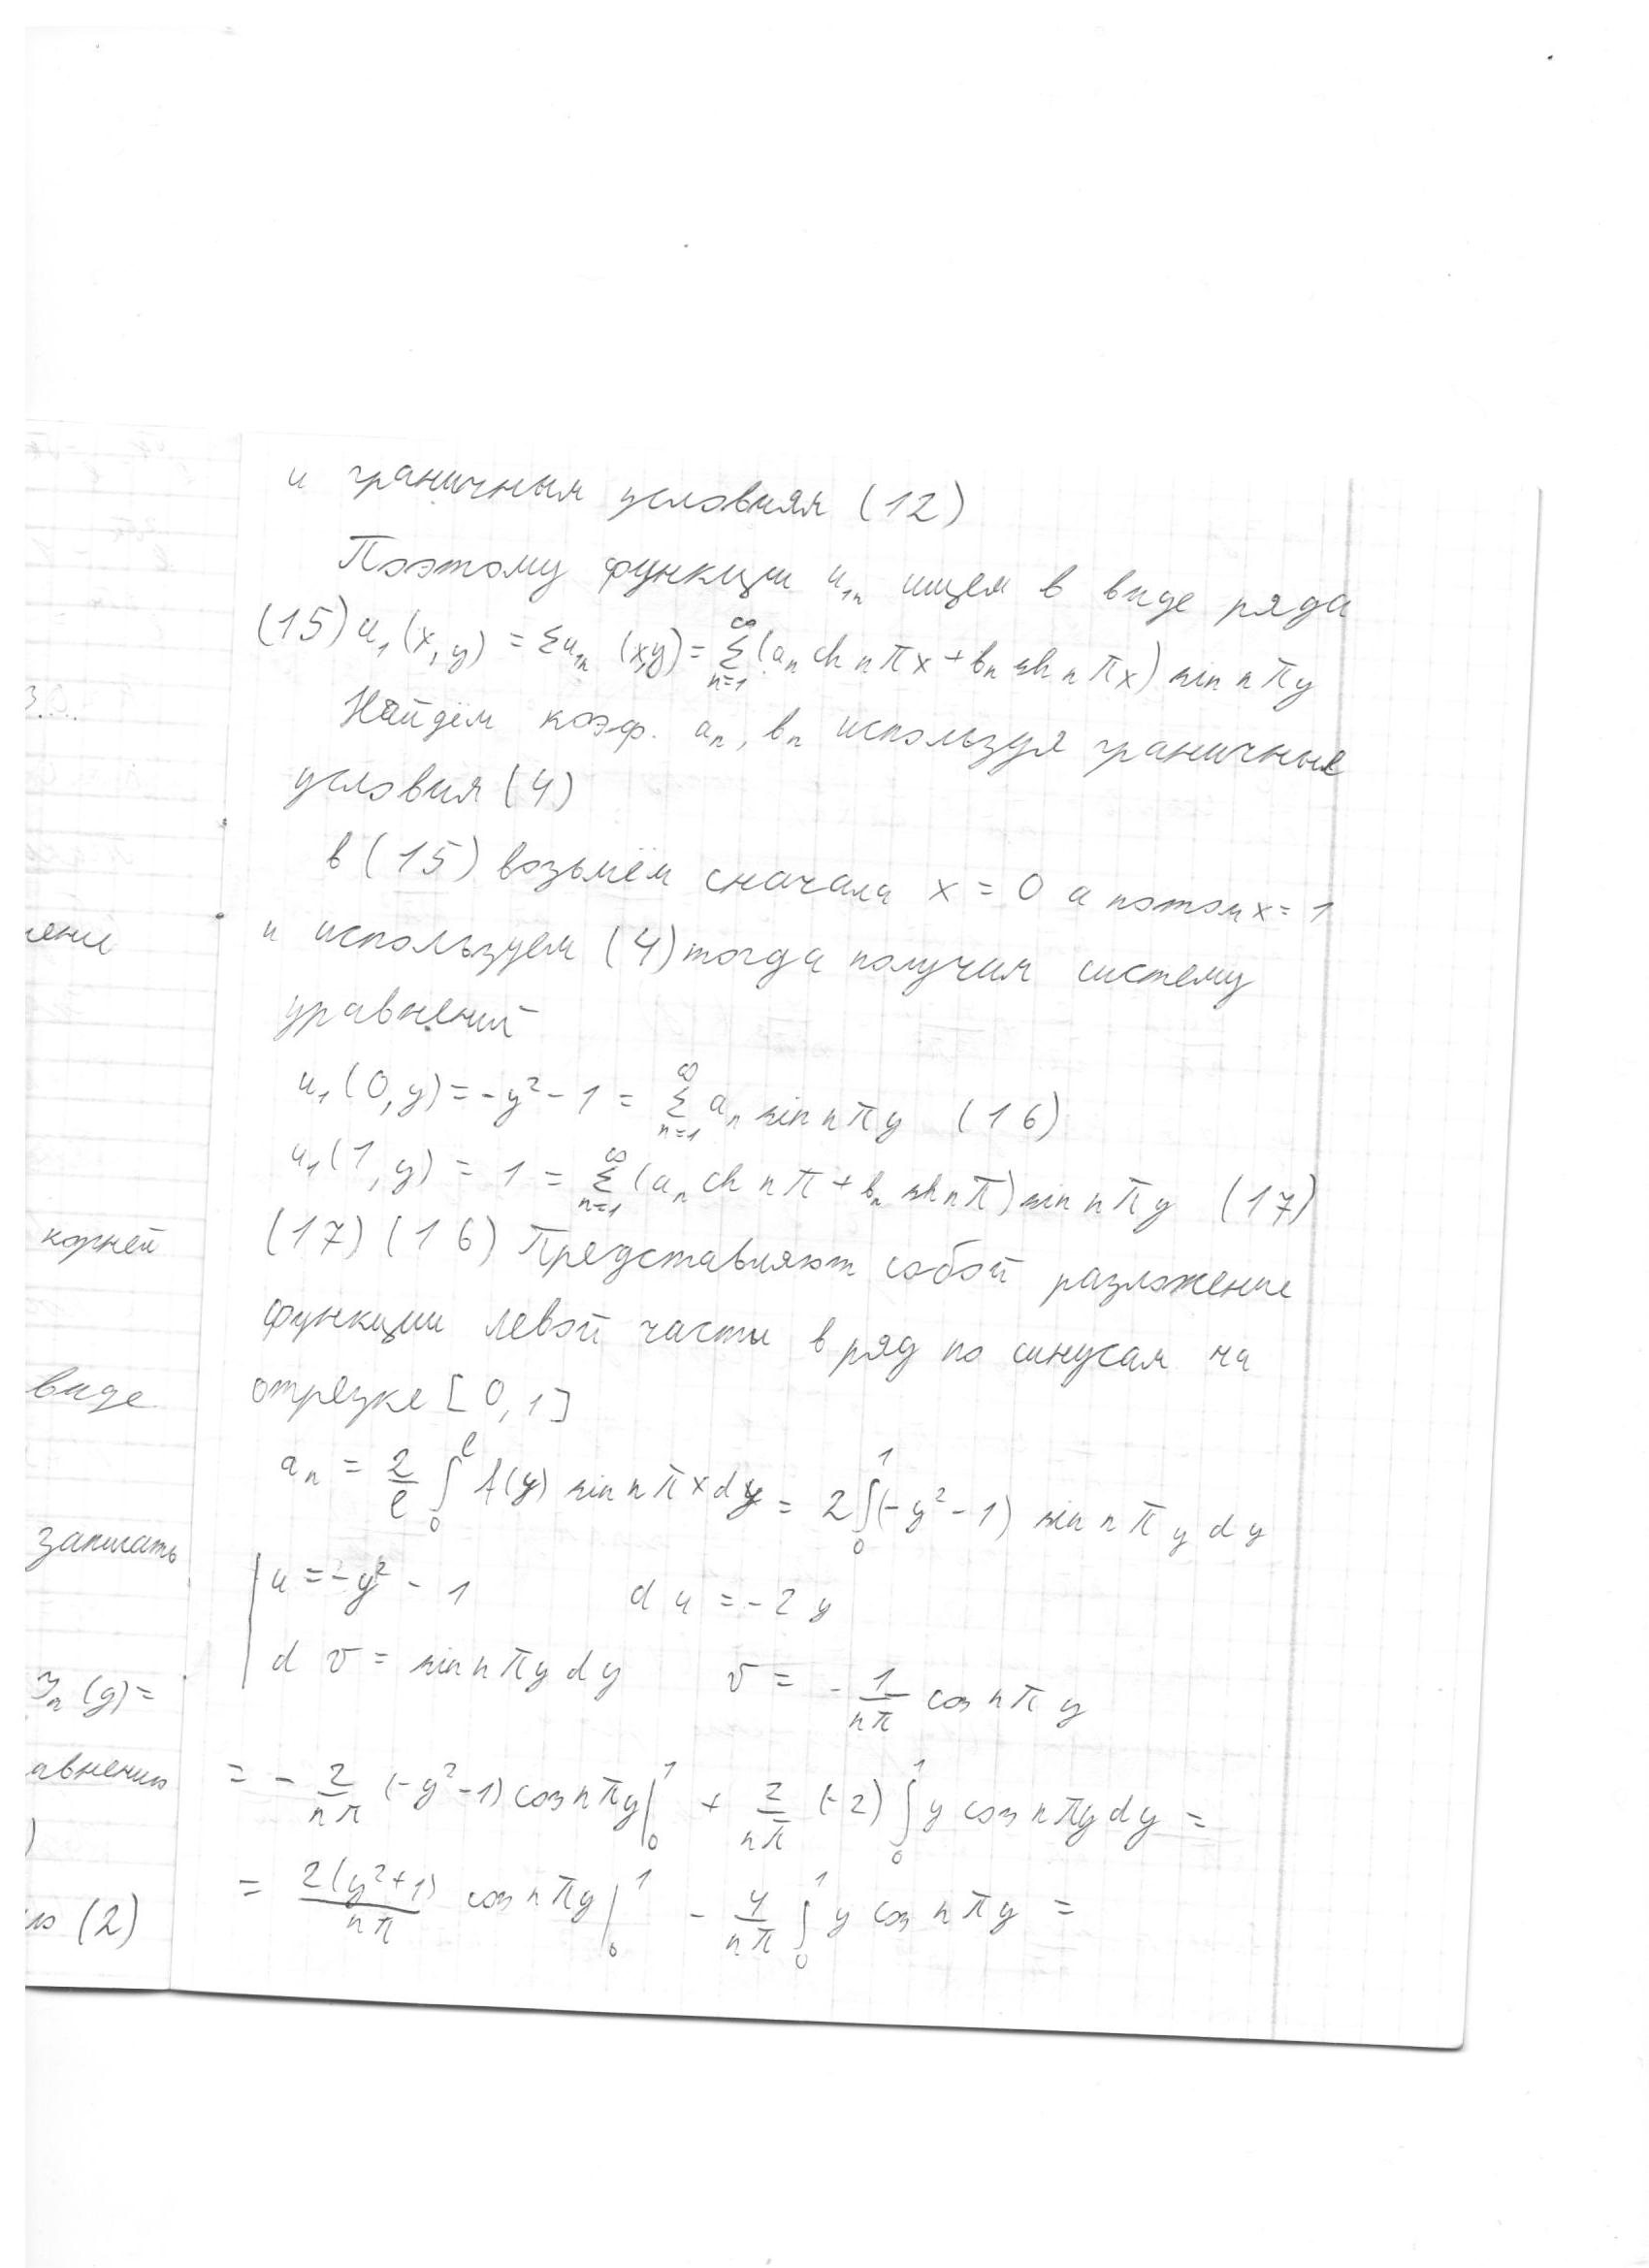 и граничным условиям (12)
Поэтому функции u₁ₙ ищем в виде ряда
(15) u₁(x,y) = Σu₁ₙ (x,y) = ∞ Σ n=1 (aₙ ch n π x + bₙ sh n π x) sin n π y
Найдём коэф. aₙ, bₙ используя граничные
условия (4)
в (15) возьмём сначала x = 0 а потом x = 1
и используем (4) тогда получим систему
уравнений
u₁(0,y) = -y² - 1 = ∞ Σ n=1 aₙ sin n π y (16)
u₁(1,y) = 1 = ∞ Σ n=1 (aₙ ch n π + bₙ sh n π) sin n π y (17)
(17) (16) Представляют собой разложение
функции левой части в ряд по синусам на
отрезке [0,1]
aₙ = 2/l ∫₀ˡ f(y) sin n π x dy = 2 ∫₀¹ (-y² - 1) sin n π y dy
u = -y² - 1 du = -2y
dv = sin n π y dy v = - 1/nπ cos n π y
= - 2/nπ (-y² - 1) cos n π y |₀¹ + 2/nπ (-2) ∫₀¹ y cos n π y dy =
= 2(y² + 1)/nπ cos n π y |₀¹ - 4/nπ ∫₀¹ y cos n π y =
корней
виде
записать
(y) =
авнению
(2)